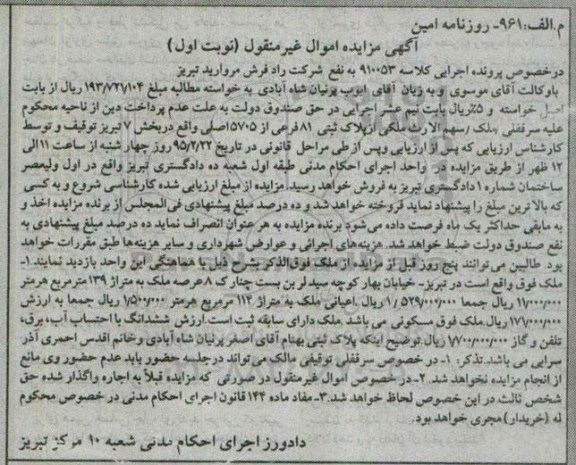 م.الف:۹۶۱- روزنامه امین
آگهی مزایده اموال غیرمنقول (نوبت اول)
درخصوص پرونده اجرایی کلاسه ۹۱۰۰۵۳ به نفع شرکت راد فرش مروارید تبریز
باوکالت آقای موسوی و به زیان آقای ایوب پرنیان شاه آبادی به خواسته مطالبه مبلغ ۱۹۳/۷۲۱/۱۰۴ ریال از بابت
اصل خواسته و ۵٪ریال بابت نیم عشر اجرایی در حق صندوق دولت به علت عدم پرداخت دین از ناحیه محکوم
علیه سرقفلی /ملک /سهم الارث ملکی ازپلاک ثبتی ۸۱ فرعی از ۵۷۰۵اصلی واقع دربخش ۷ تبریز توقیف و توسط
کارشناس ارزیابی که پس از ارزیابی وپس از طی مراحل قانونی در تاریخ ۹۵/۲/۲۲ روز چهار شنبه از ساعت ۱۱الی
۱۲ ظهر از طریق مزایده در واحد اجرای احکام مدنی طبقه اول شعبه ده دادگستری تبریز واقع در اول ولیعصر
ساختمان شماره ۱دادگستری تبریز به فروش خواهد رسید.مزایده از مبلغ ارزیابی شده کارشناسی شروع و به کسی
که بالا ترین مبلغ را پیشنهاد نماید فروخته خواهد شد و ده درصد مبلغ پیشنهادی فی المجلس از برنده مزایده اخذ و
به مابقی حداکثر یک ماه فرصت داده می شود برنده مزایده به هر عنوان انصراف نماید ده درصد مبلغ پیشنهادی به
نفع صندوق دولت ضبط خواهد شد. هزینه‌های اجرائی و عوارض شهرداری و سایر هزینه‌ها طبق مقررات خواهد
بود. طالبین می‌توانند پنج روز قبل از مزایده از ملک فوق الذکر بشرح ذیل با هماهنگی این واحد بازدید نمایند.۱-
ملک فوق واقع است در تبریز- خیابان بهار کوچه سید لر بن بست چنارک ۸ عرصه ملک به متراژ ۱۳۹ مترمربع هرمتر
۱۱/۰۰۰/۰۰۰ ریال جمعا ۱/۵۲۹/۰۰۰/۰۰۰ ریال .اعیانی ملک به متراژ ۱۱۴ مترمربع هرمتر ۱/۵۰۰/۰۰۰ ریال جمعا به ارزش
۱۷۱/۰۰۰/۰۰۰ ریال.ملک فوق مسکونی می باشد .ملک دارای سابقه ثبت است.ارزش ششدانگ با احتساب آب، برق،
تلفن و گاز ۱/۷۰۰/۰۰۰/۰۰۰ ریال.توضیح اینکه پلاک ثبتی بهنام آقای اصغر پرنیان شاه آبادی و خانم اقدس احمری آذر
سرایی می باشد.تذکر: ۱- در خصوص سرقفلی توقیفی مالک می تواند درجلسه حضور یابد عدم حضور وی مانع
از انجام مزایده نخواهد شد. ۲- در خصوص اموال غیرمنقول در صورتی که مزایده قبلاً به اجاره واگذار شده حق
شخص ثالث در این خصوص لحاظ خواهد شد.۳- مفاد ماده ۱۴۴ قانون اجرای احکام مدنی در خصوص محکوم
له (خریدار) مجری خواهد بود.
دادورز اجرای احکام مدنی شعبه ۱۰ مرکز تبریز